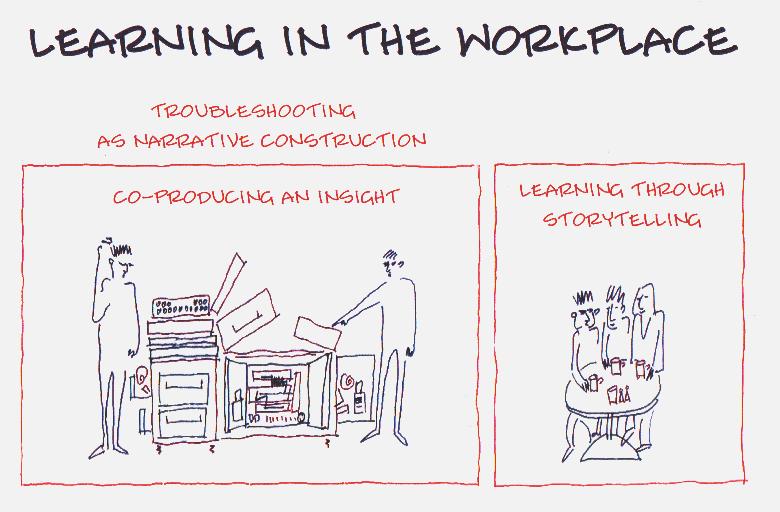 LEARNING IN THE WORKPLACE
TROUBLESHOOTING
AS NARRATIVE CONSTRUCTION
CO-PRODUCING AN INSIGHT
LEARNING THROUGH
STORYTELLING